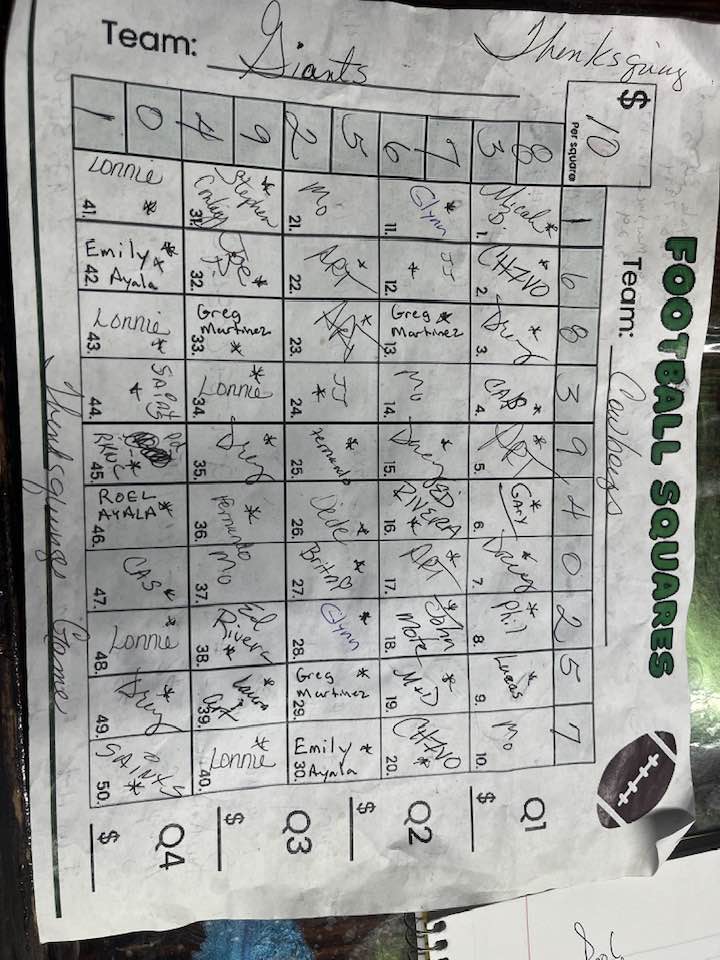 FOOTBALL SQUARES
Thenksgiving
$ 10
Per square
Team: Cowboys
Team: Giants
1 6 8 3 9 4 0 2 5 7
8 3
7 6
5 2
9 4
0 1
Micah D. * 1.
CHINO * 2.
Drey * 3.
CAS * 4.
ART * 5.
Gary * 6.
Drey * 7.
Phil * 8.
Lucas * 9.
Mo 10.
Glynn * 11.
JJ * 12.
Greg * Martinez 13.
Mo 14.
Drey * 15.
ED RIVERA * 16.
ART * 17.
John Mote * 18.
19.
CHINO * 20.
Mo 21.
ART * 22.
ART * 23.
JJ * 24.
Fernando * 25.
Dede * 26.
Britny * 27.
Glynn * 28.
Greg * Martinez 29.
Emily * Ayala 30.
Stephen * Conley 31.
Joe * 32.
Greg Martinez * 33.
Lonnie * 34.
Drey * 35.
Fernando * 36.
Mo 37.
Ed Rivera * 38.
Laura * 39.
Lonnie * 40.
Lonnie * 41.
Emily * Ayala 42.
Lonnie * 43.
SAINTS * 44.
45.
ROEL * AYALA 46.
CAS * 47.
Lonnie * 48.
Drey * 49.
SAINTS * 50.
Q1 $
Q2 $
Q3 $
Q4 $
Thenksgiving Game